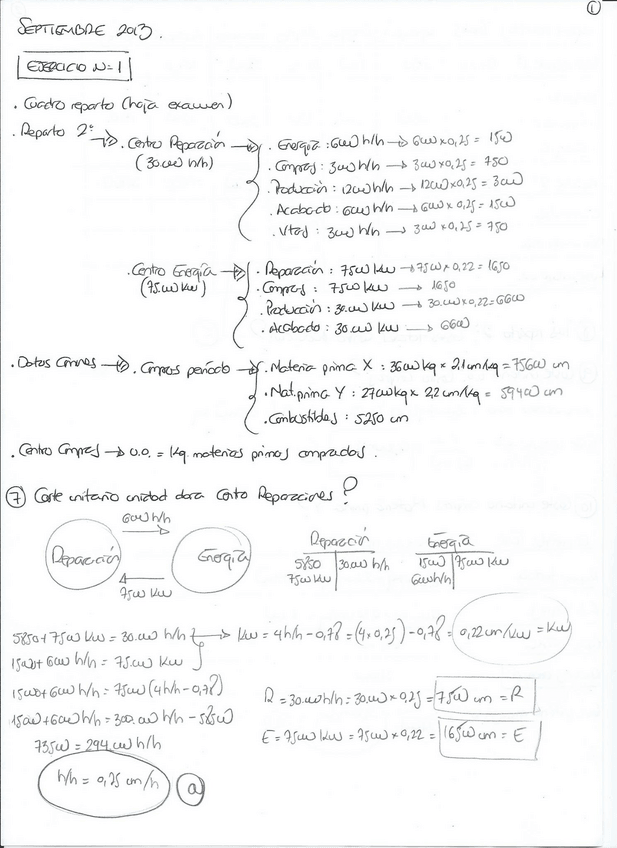 ①
SEPTIEMBRE 2013.
EJERCICIO N=1
. Cuadro reparto (hoja examen)
. Reparto 2º → . Centro Reparación → . Energía : 6000 h/h → 6000 x 0,25 = 1500
(30.000 h/h) . Compras : 3000 h/h → 3000 x 0,25 = 750
. Producción : 12000 h/h → 12000 x 0,25 = 3000
. Acabado : 6000 h/h → 6000 x 0,25 = 1500
. Vtas : 3000 h/h → 3000 x 0,25 = 750
. Centro Energía → . Reparación : 7500 kw → 7500 x 0,22 = 1650
(75.000 kw) . Compras : 7500 kw → 1650
. Producción : 30.000 kw → 30.000 x 0,22 = 6600
. Acabado : 30.000 kw → 6600
. Datos Comunes → . Compras período → . Materia prima X : 36000 kg x 2,1 um/kg = 75600 um
. Mat. prima Y : 27000 kg x 2,2 um/kg = 59400 um
. Combustibles : 5250 um
. Centro Compras → U.O. = kg. materias primas compradas.
⑦ Coste unitario unidad obra Centro Reparaciones?
6000 h/h
Reparación Energía
7500 kw
Reparación Energía
5850 | 30.000 h/h 15000 | 75000 kw
7500 kw 6000 h/h
5850 + 7500 kw = 30.000 h/h → kw = 4 h/h - 0,78 = (4 x 0,25) - 0,78 = 0,22 um/kw = kw
15000 + 6000 h/h = 75.000 kw
15000 + 6000 h/h = 75000 (4 h/h - 0,78)
15000 + 6000 h/h = 300.000 h/h - 58500
73500 = 294.000 h/h
h/h = 0,25 um/h ⓐ
R = 30.000 h/h = 30.000 x 0,25 = 7500 um = R
E = 75000 kw = 75000 x 0,22 = 16500 um = E